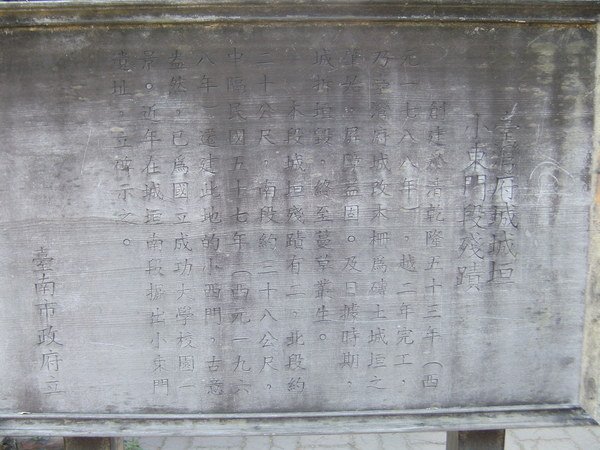 臺灣府城城垣
小東門段殘蹟
創建於清乾隆五十三年(西
元一七八八年),越二年完工,
乃臺灣府城改木柵為磚土城垣之
肇基。屏障益固。及日據時期,
城拆垣毀,終至蔓草叢生。
本段城垣殘蹟有二,北段約
二十公尺,南段約二十八公尺,
中隔民國五十七年(西元一九六
八年)遷建此地的小西門,古意
盎然,已為國立成功大學校園一
景。近年在城垣南段掘出小東門
遺址,立碑示之。
臺南市政府立